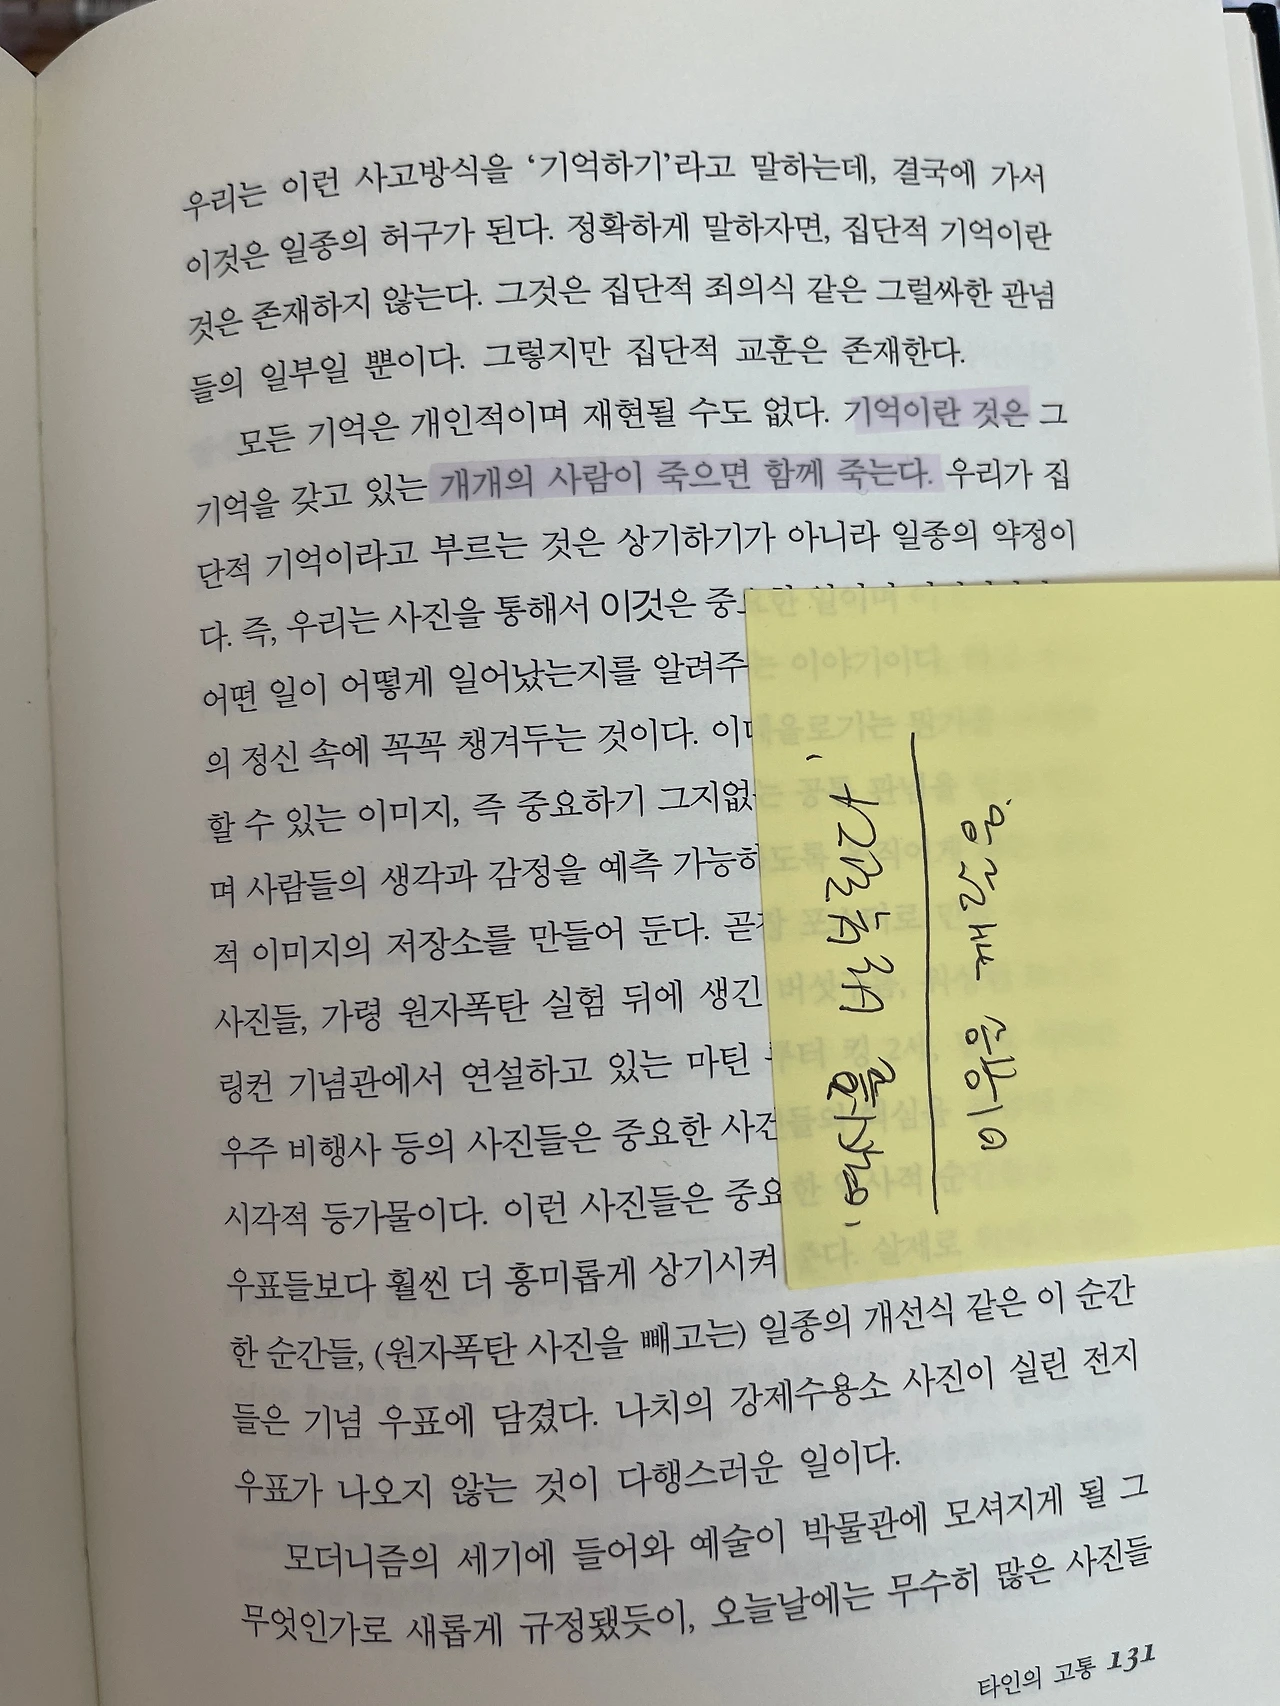 우리는 이런 사고방식을 ‘기억하기’라고 말하는데, 결국에 가서
이것은 일종의 허구가 된다. 정확하게 말하자면, 집단적 기억이란
것은 존재하지 않는다. 그것은 집단적 죄의식 같은 그럴싸한 관념
들의 일부일 뿐이다. 그렇지만 집단적 교훈은 존재한다.
모든 기억은 개인적이며 재현될 수도 없다. 기억이란 것은 그
기억을 갖고 있는 개개의 사람이 죽으면 함께 죽는다. 우리가 집
단적 기억이라고 부르는 것은 상기하기가 아니라 일종의 약정이
다. 즉, 우리는 사진을 통해서 이것은 중요한 일이며
어떤 일이 어떻게 일어났는지를 알려주는 이야기이다
의 정신 속에 꼭꼭 챙겨두는 것이다.
할 수 있는 이미지, 즉 중요하기 그지없는 공통 관념을
며 사람들의 생각과 감정을 예측
적 이미지의 저장소를 만들어 둔다.
사진들, 가령 원자폭탄 실험 뒤에 생긴 버섯
링컨 기념관에서 연설하고 있는 마틴 킹 2세,
우주 비행사 등의 사진들은 중요한
시각적 등가물이다. 이런 사진들은 중요한
우표들보다 훨씬 더 흥미롭게 상기시켜 준다. 실제로
한 순간들, (원자폭탄 사진을 빼고는) 일종의 개선식 같은 이 순간
들은 기념 우표에 담겼다. 나치의 강제수용소 사진이 실린 전지
우표가 나오지 않는 것이 다행스러운 일이다.
모더니즘의 세기에 들어와 예술이 박물관에 모셔지게 될 그
무엇인가로 새롭게 규정됐듯이, 오늘날에는 무수히 많은 사진들
타인의 고통 131